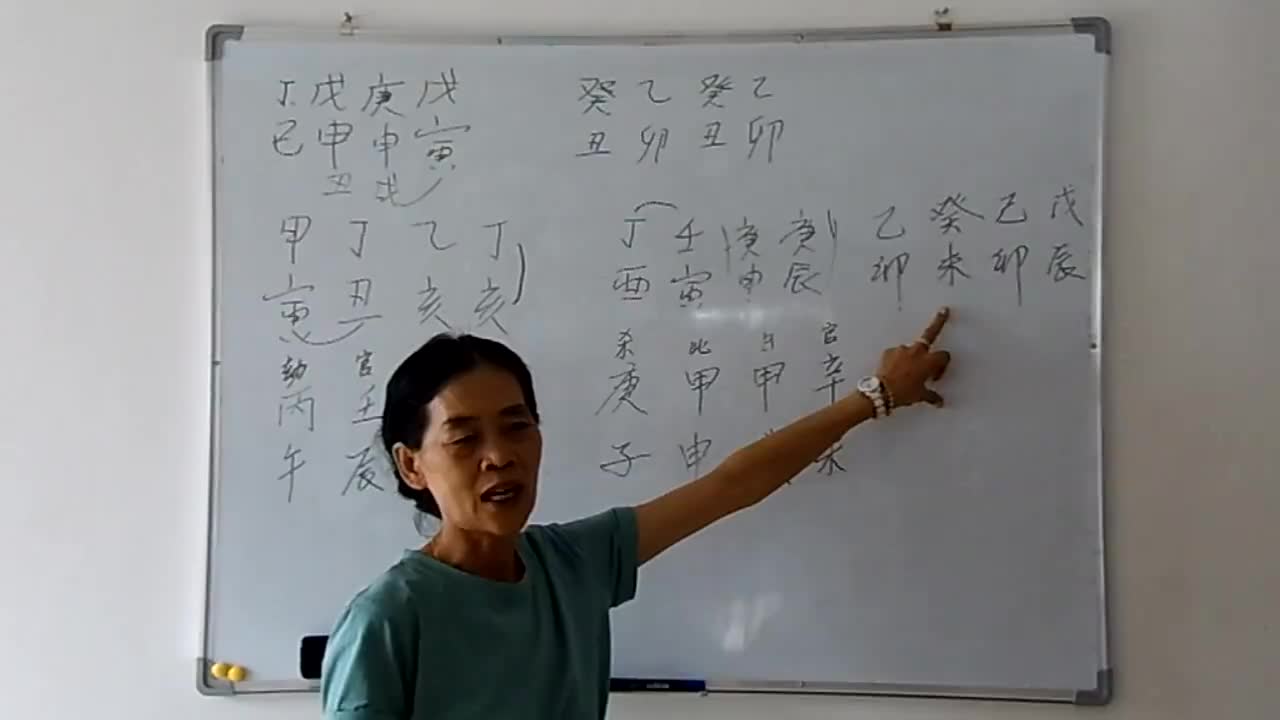 丁戊庚戊
巳申申寅
丑戌
癸乙癸乙
丑卯丑卯
甲丁乙丁
寅丑亥亥
丁壬庚庚
酉寅申辰
乙癸己戊
卯未卯辰
劫官
丙壬
午辰
杀比 官
庚甲甲辛
子申 未